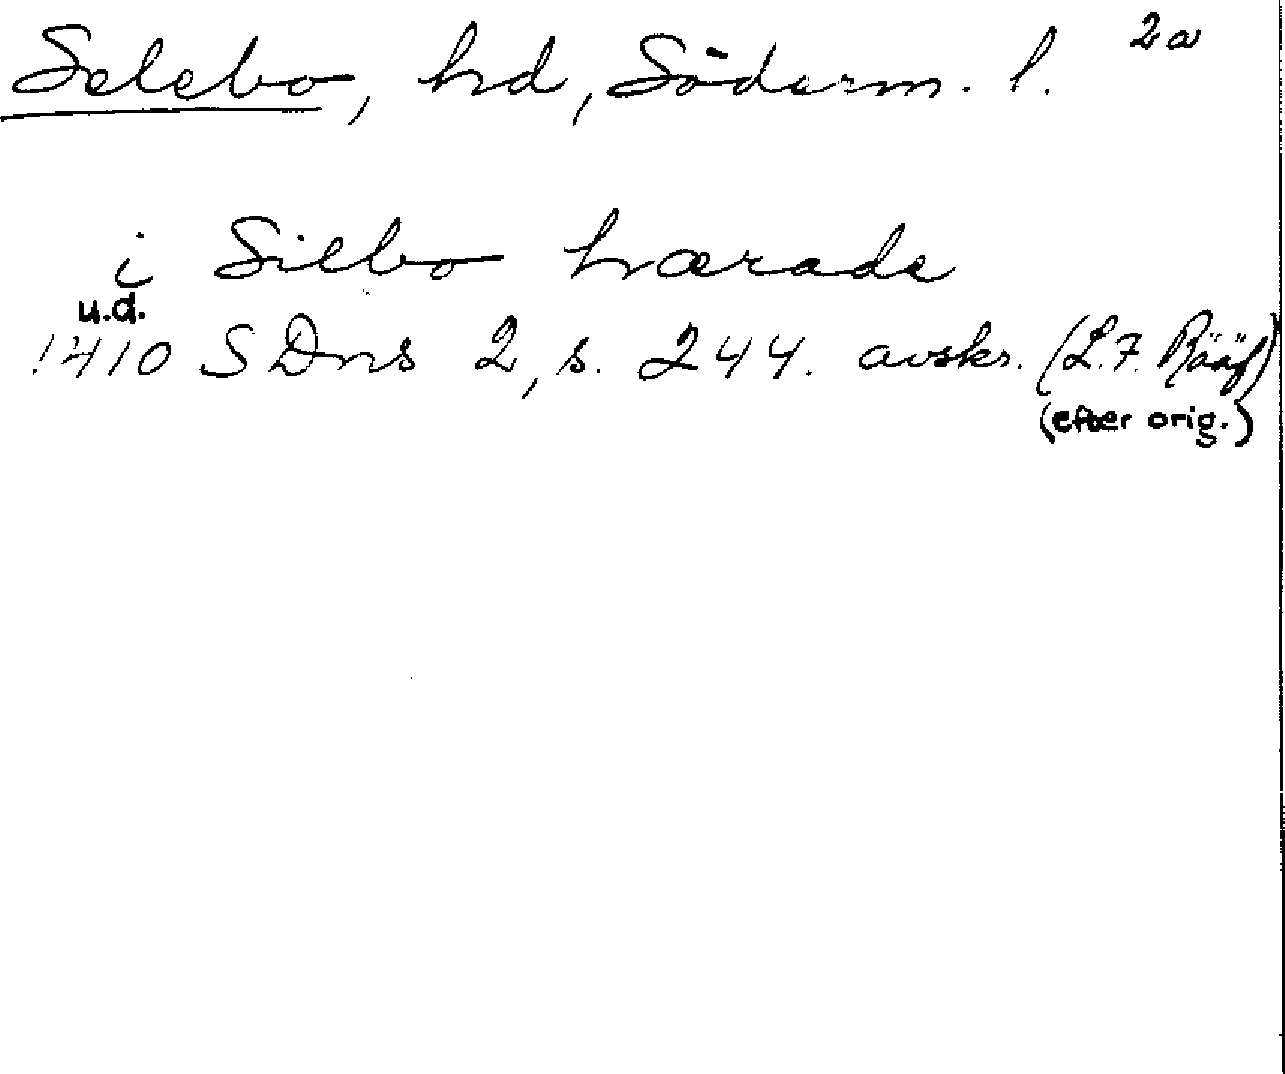 Selebo, hd, Söderm. l. 2a
i Silbo hærade
u.d.
1410 SDns 2, s. 244. avskr. (L.F. Rääf)
(efter orig.)